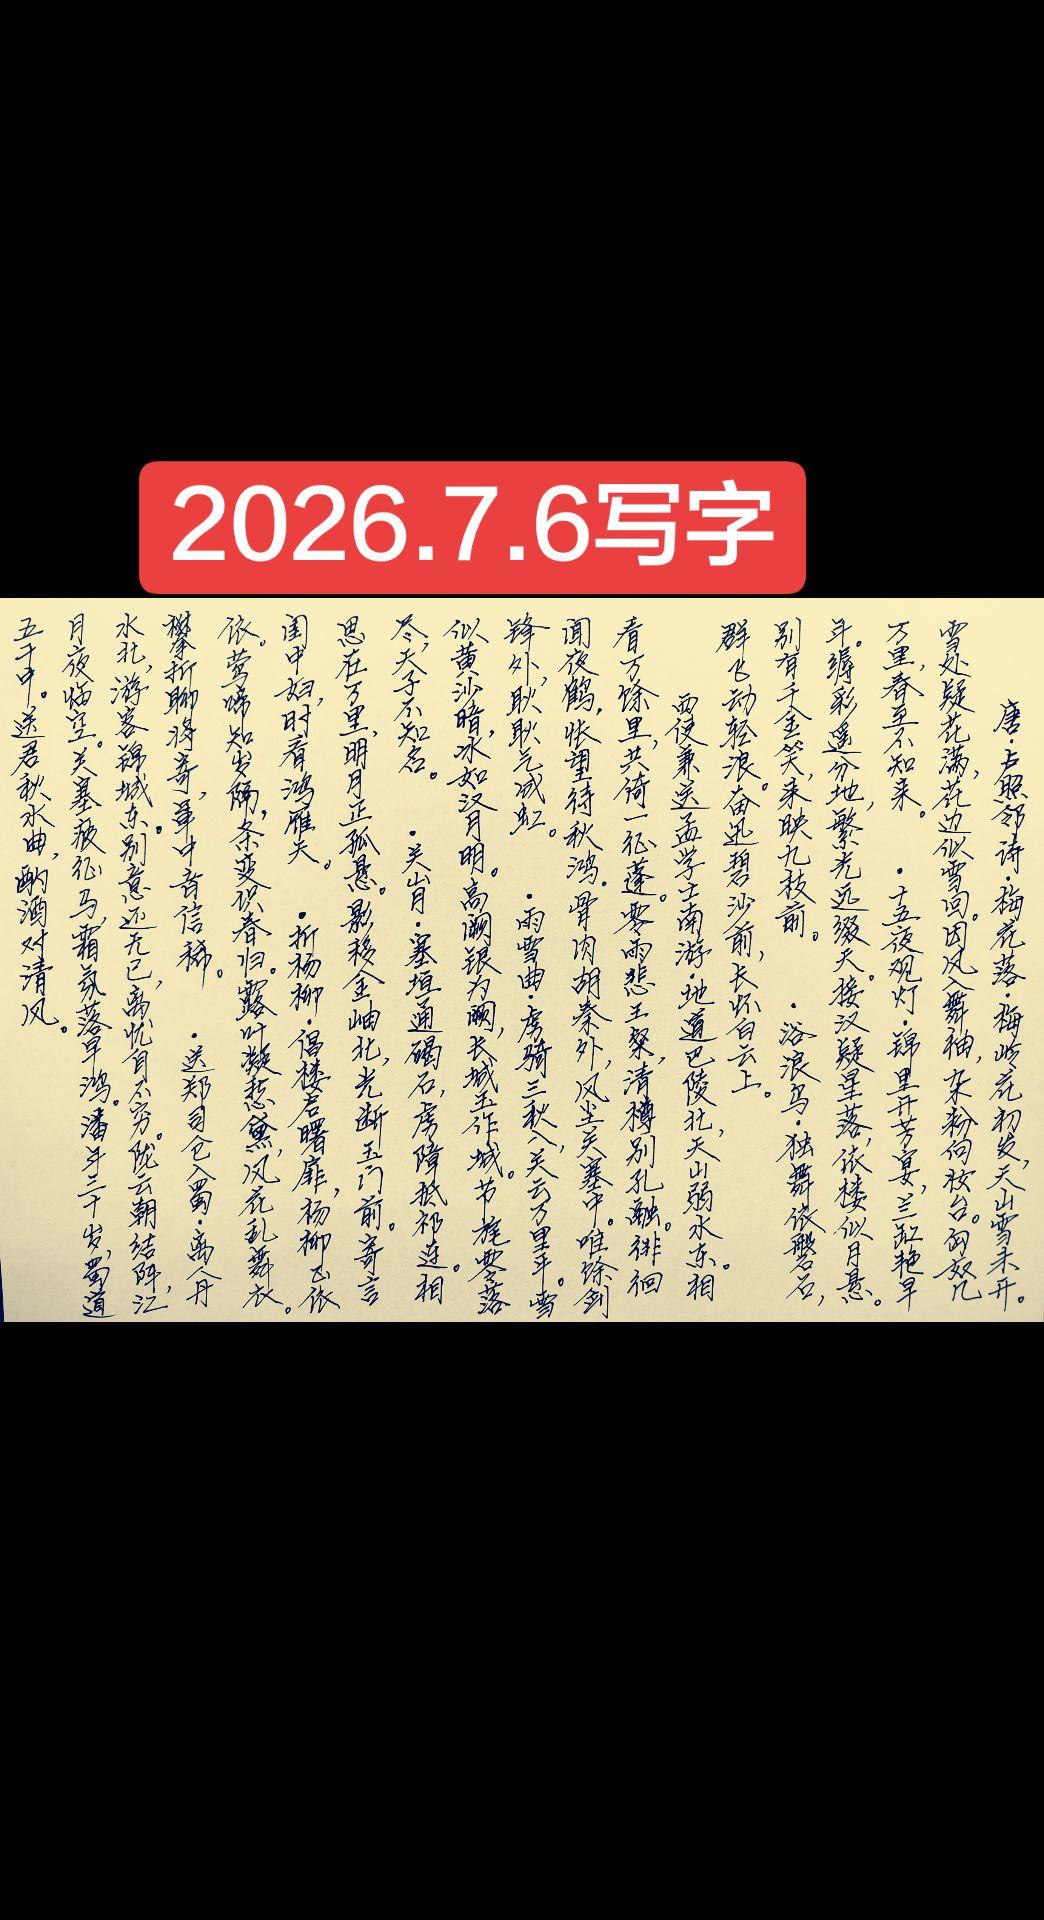 2026.7.6写字
唐·卢照邻诗·梅花落·梅岭花初发，天山雪未开。
雪处疑花满，花边似雪回。因风入舞袖，杂粉向妆台。匈奴几
万里，春至不知来。·十五夜观灯·锦里开芳宴，兰缸艳早
年。缛彩遥分地，繁光远缀天。接汉疑星落，依楼似月悬。
别有千金笑，来映九枝前。·浴浪鸟·独舞依磐石，
群飞动轻浪。奋迅碧沙前，长怀白云上。
西使兼送孟学士南游·地道巴陵北，天山弱水东。相
看万馀里，共倚一征蓬。零雨悲王粲，清樽别孔融。徘徊
闻夜鹤，怅望待秋鸿。骨肉胡秦外，风尘关塞中。唯馀剑
锋外，耿耿气成虹。·雨雪曲·虏骑三秋入，关云万里平。雪
似黄沙暗，冰如汉月明。高阙银为阙，长城玉作城。节旄零落
尽，天子不知名。·关山月·塞垣通碣石，虏障抵祁连。相
思在万里，明月正孤悬。影移金岫北，光断玉门前。寄言
闺中妇，时看鸿雁天。·折杨柳·倡楼启曙扉，杨柳正依
依。莺啼知岁隔，条变识春归。露叶凝愁黛，风花乱舞衣。
攀折聊将寄，军中音信稀。·送郑司仓入蜀·离人丹
水北，游客锦城东。别意还无已，离忧自不穷。陇云朝结阵，江
月夜临空。关塞疲征马，霜氛落早鸿。潘年三十岁，蜀道
五千中。送君秋水曲，酌酒对清风。